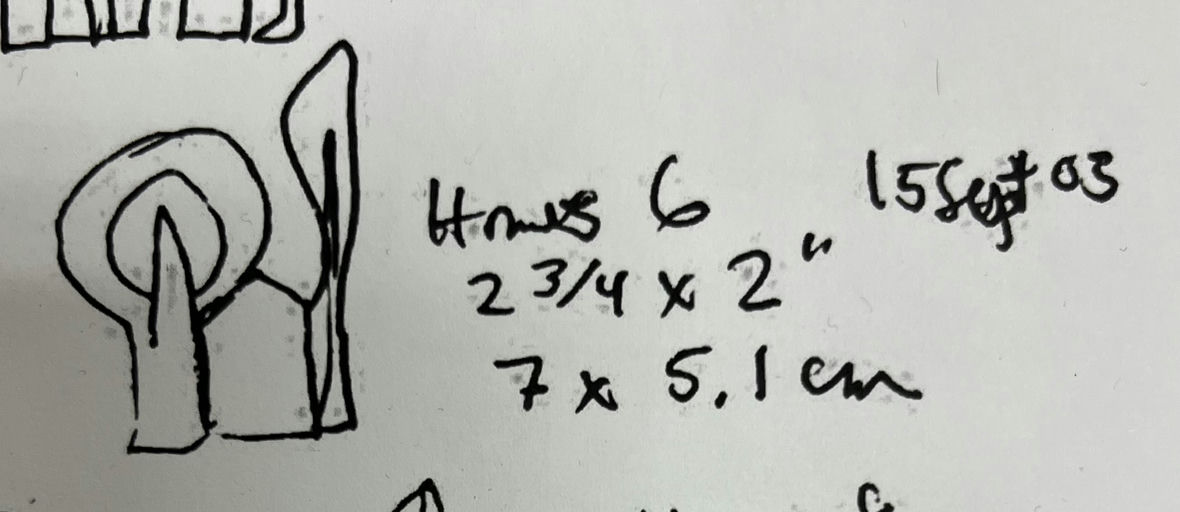 6 15 Sept 03
2 3/4 x 2"
7 x 5.1 cm